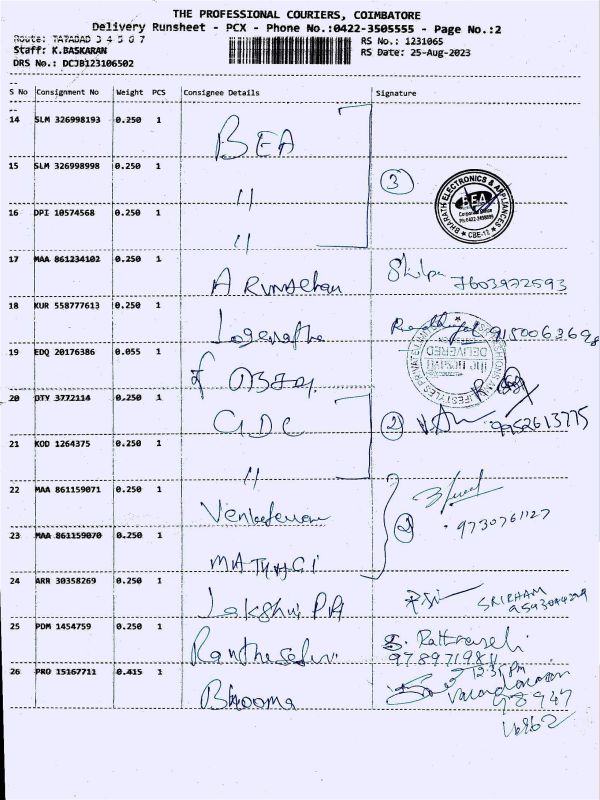 THE PROFESSIONAL COURIERS, COIMBATORE
Delivery Runsheet - PCX - Phone No.:0422-3505555 - Page No.:2
Route: TATABAD 3 4 5 6 7
RS No.: 1231065
Staff: K.BASKARAN
RS Date: 25-Aug-2023
DRS No.: DCJB123106502
S No Consignment No Weight PCS Consignee Details Signature
14 SLM 326998193 0.250 1 BEA
15 SLM 326998998 0.250 1 〃 3
BHARATH ELECTRONICS & APPLIANCES
BEA
CBE-12
16 DPI 10574568 0.250 1 〃
17 MAA 861234102 0.250 1 Shilpa 7603972593
18 KUR 558777613 0.250 1 9150063698
19 EDQ 20176386 0.055 1
DELIVERED
20 DTY 3772114 0.250 1 GDC 2 9952613775
21 KOD 1264375 0.250 1 〃
22 MAA 861159071 0.250 1 9730761127
23 MAA 861159070 0.250 1 MATHANGI
24 ARR 30358269 0.250 1 SRIRHAM
25 PDM 1454759 0.250 1
26 PRO 15167711 0.415 1 Bhooma 12:31 pm